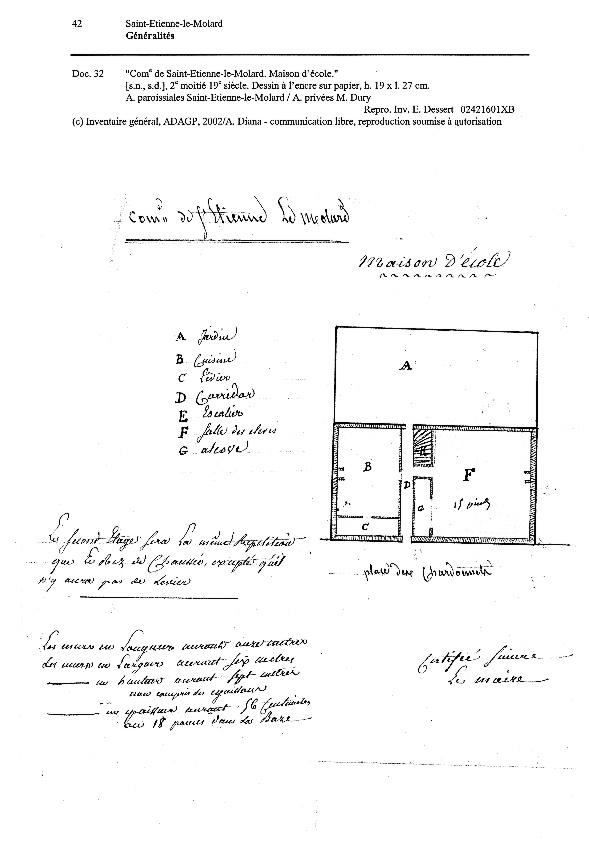 42 Saint-Etienne-le-Molard
Généralités
Doc. 32 "Comᵉ de Saint-Etienne-le-Molard. Maison d'école."
[s.n., s.d.], 2ᵉ moitié 19ᵉ siècle. Dessin à l'encre sur papier, h. 19 x l. 27 cm.
A. paroissiales Saint-Etienne-le-Molard / A. privées M. Dury
Repro. Inv. E. Dessert 02421601XB
(c) Inventaire général, ADAGP, 2002/A. Diana - communication libre, reproduction soumise à autorisation
Comⁿ de St Etienne Le Molard
Maison D'école
A Jardin
B Cuisine
C Lévier
D Corridor
E Escalier
F Salle des élèves
G alcove
A
B
F
D
G
C
place des Chardonnets
Le second Etage sera la même Repetition
que le Rez de Chaussée, excepté qu'il
n'y aura pas de Levier
Les murs en Longueur auront onze mètres
Les murs en Largeur auront six mètres
en hauteur auront sept mètres
non compris les
en épaisseur auront 56 Centimètres
ou 18 pouces dans la Base
Certifié sincère
Le maire